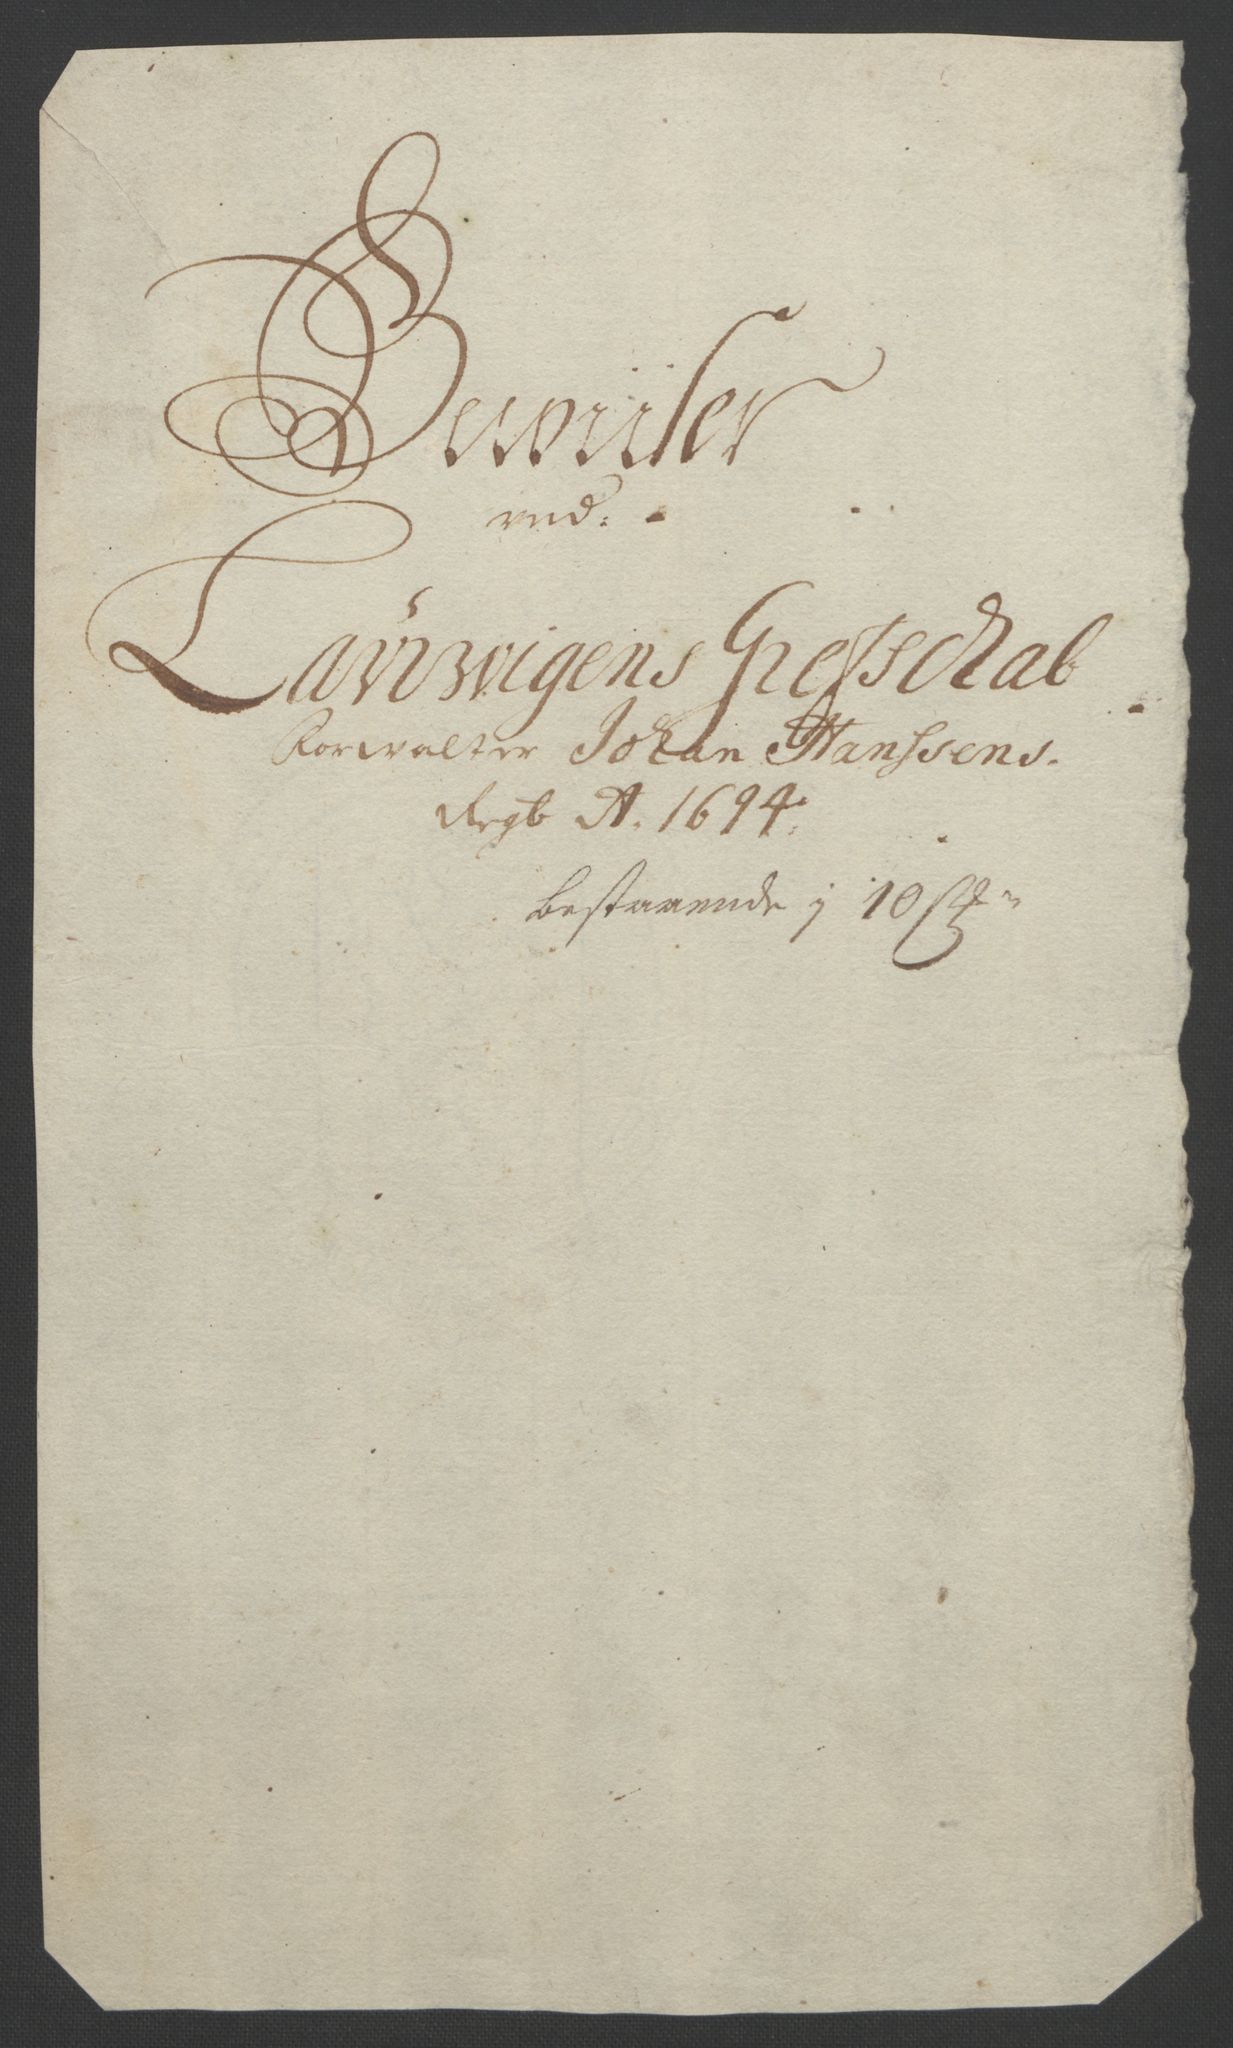 Bewiiser
ved:
Laurwigens Grefschab
Forwalter Johan Hanssens.
Regb A. 1694.
bestaaende j 10 st